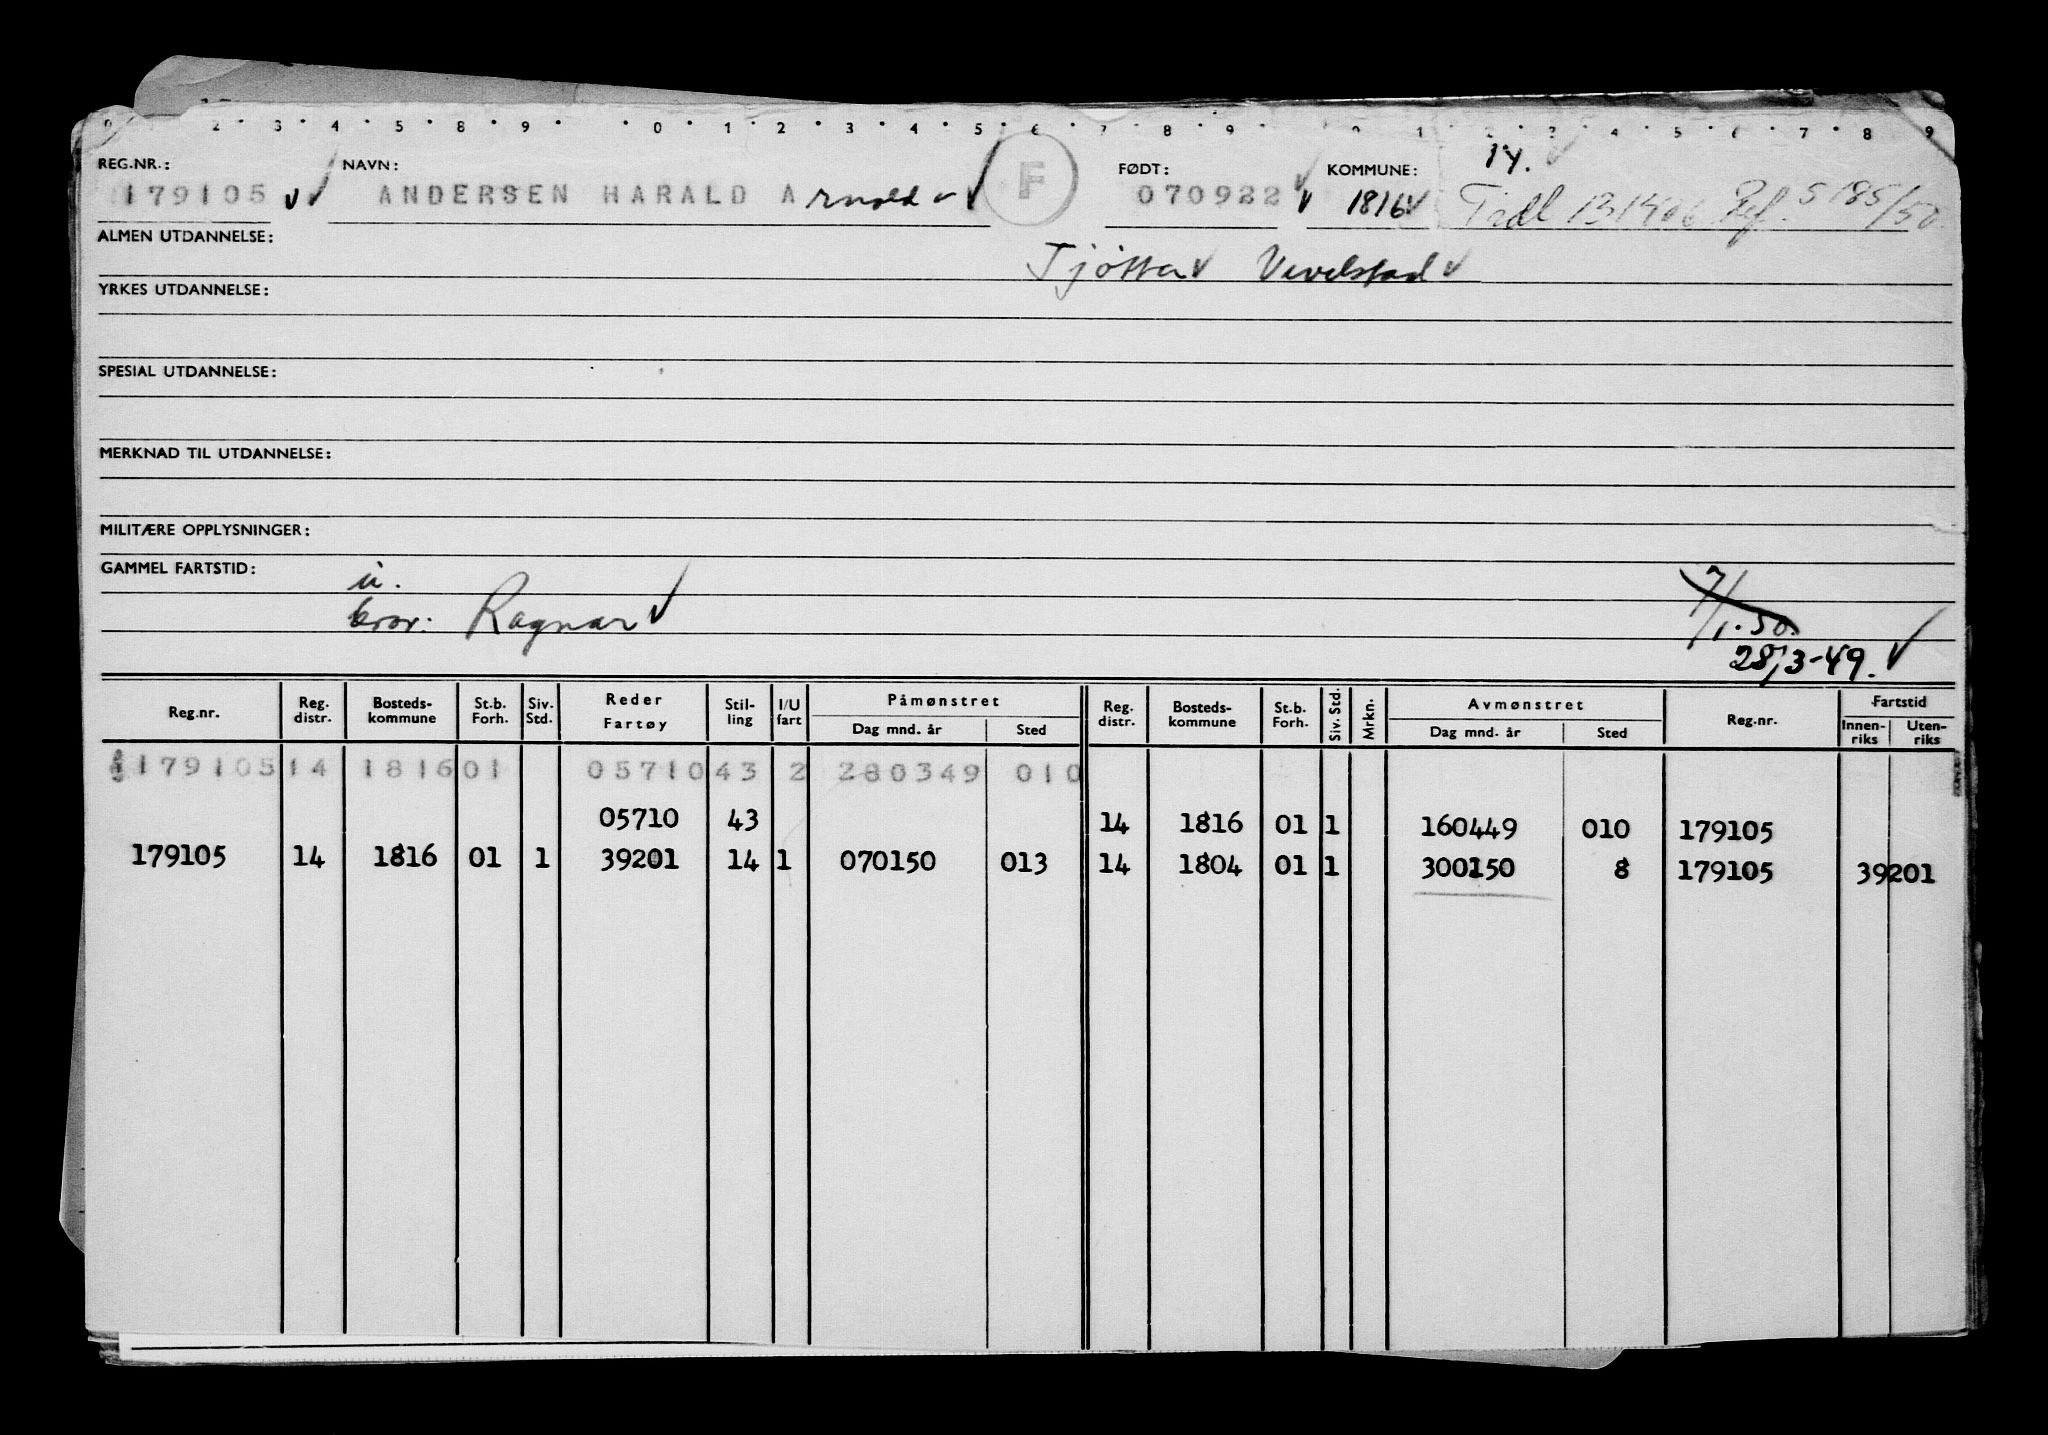 2 3 4 5 8 9 0 1 2 3 4 5 6 7 8 9 1 2 3 4 5 6 7 8 9
REG.NR.: NAVN: FØDT: KOMMUNE: 14.
179105 ANDERSEN HARALD Arnold F 070922 1816 Tidl 131406 Ref. S 185/50
ALMEN UTDANNELSE: Tjøtta Vevelstad
YRKES UTDANNELSE:
SPESIAL UTDANNELSE:
MERKNAD TIL UTDANNELSE:
MILITÆRE OPPLYSNINGER:
GAMMEL FARTSTID: u. 7/1.50.
bror: Ragnar
28/3-49.
Reg.nr. Reg. distr. Bosteds-kommune St.b. Forh. Siv. Std. Reder Fartøy Stil-ling I/U fart Påmønstret Dag mnd. år Sted Reg. distr. Bosteds-kommune St.b. Forh. Siv. Std. Mrkn. Avmønstret Dag mnd. år Sted Reg.nr. Fartstid Innen-riks Uten-riks
179105 14 1816 01 05710 43 2 280349 010
05710 43 14 1816 01 1 160449 010 179105
179105 14 1816 01 1 39201 14 1 070150 013 14 1804 01 1 300150 8 179105 39201